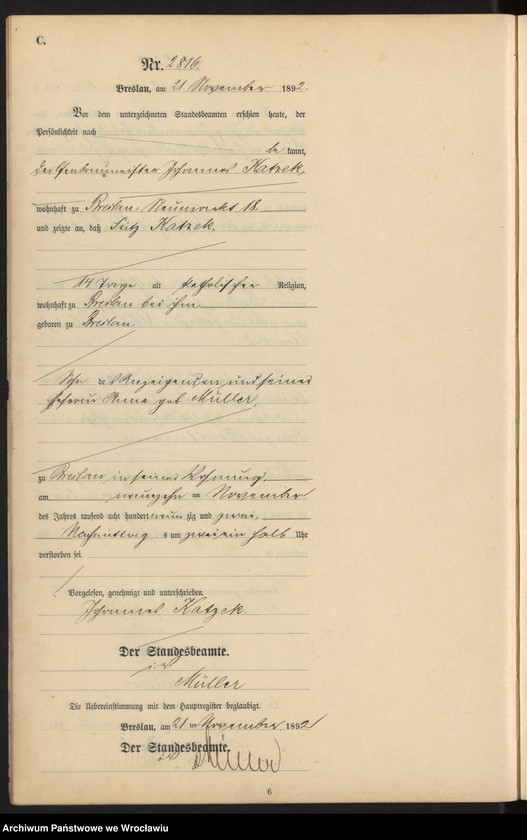 C.
Nr. 2816.
Breslau, am 21. November 1892.
Vor dem unterzeichneten Standesbeamten erschien heute, der
Persönlichkeit nach
be kannt,
der Johannes Katzek,
wohnhaft zu Breslau, Neumarkt 18.
und zeigte an, daß Fritz Katzek,
14 Tage alt katholischer Religion,
wohnhaft zu Breslau bei ihm
geboren zu Breslau.
Sohn des Anzeigenden und seiner
Ehefrau Anna geb Müller,
zu Breslau in seiner Wohnung,
am neunzehn ten November
des Jahres tausend acht hundert neun zig und zwei,
Nachmittag s um zwei ein halb Uhr
verstorben sei
Vorgelesen, genehmigt und unterschrieben.
Johannes Katzek.
Der Standesbeamte.
i. V.
Müller
Die Uebereinstimmung mit dem Hauptregister beglaubigt.
Breslau, am 21 ten November 1892
Der Standesbeamte.
i. V. Müller
6
Archiwum Państwowe we Wrocławiu